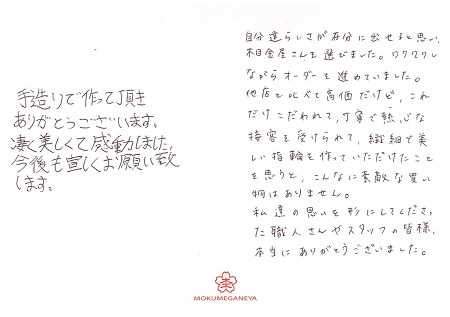 手造りで作って頂き
ありがとうございます。
凄く美しくて感動しました。
今後も宜しくお願い致
します。
自分達らしさが存分に出せると思い、
杢目金屋さんを選びました。ワクワクし
ながらオーダーを進めていました。
他店と比べて高価だけど、これ
だけこだわれて、丁寧で熱心な
接客を受けられて、繊細で美し
い指輪を作っていただけたこと
を思うと、こんなに素敵な買い
物はありません。
私達の思いを形にしてくださっ
た職人さんやスタッフの皆様、
本当にありがとうございました。
MOKUMEGANEYA